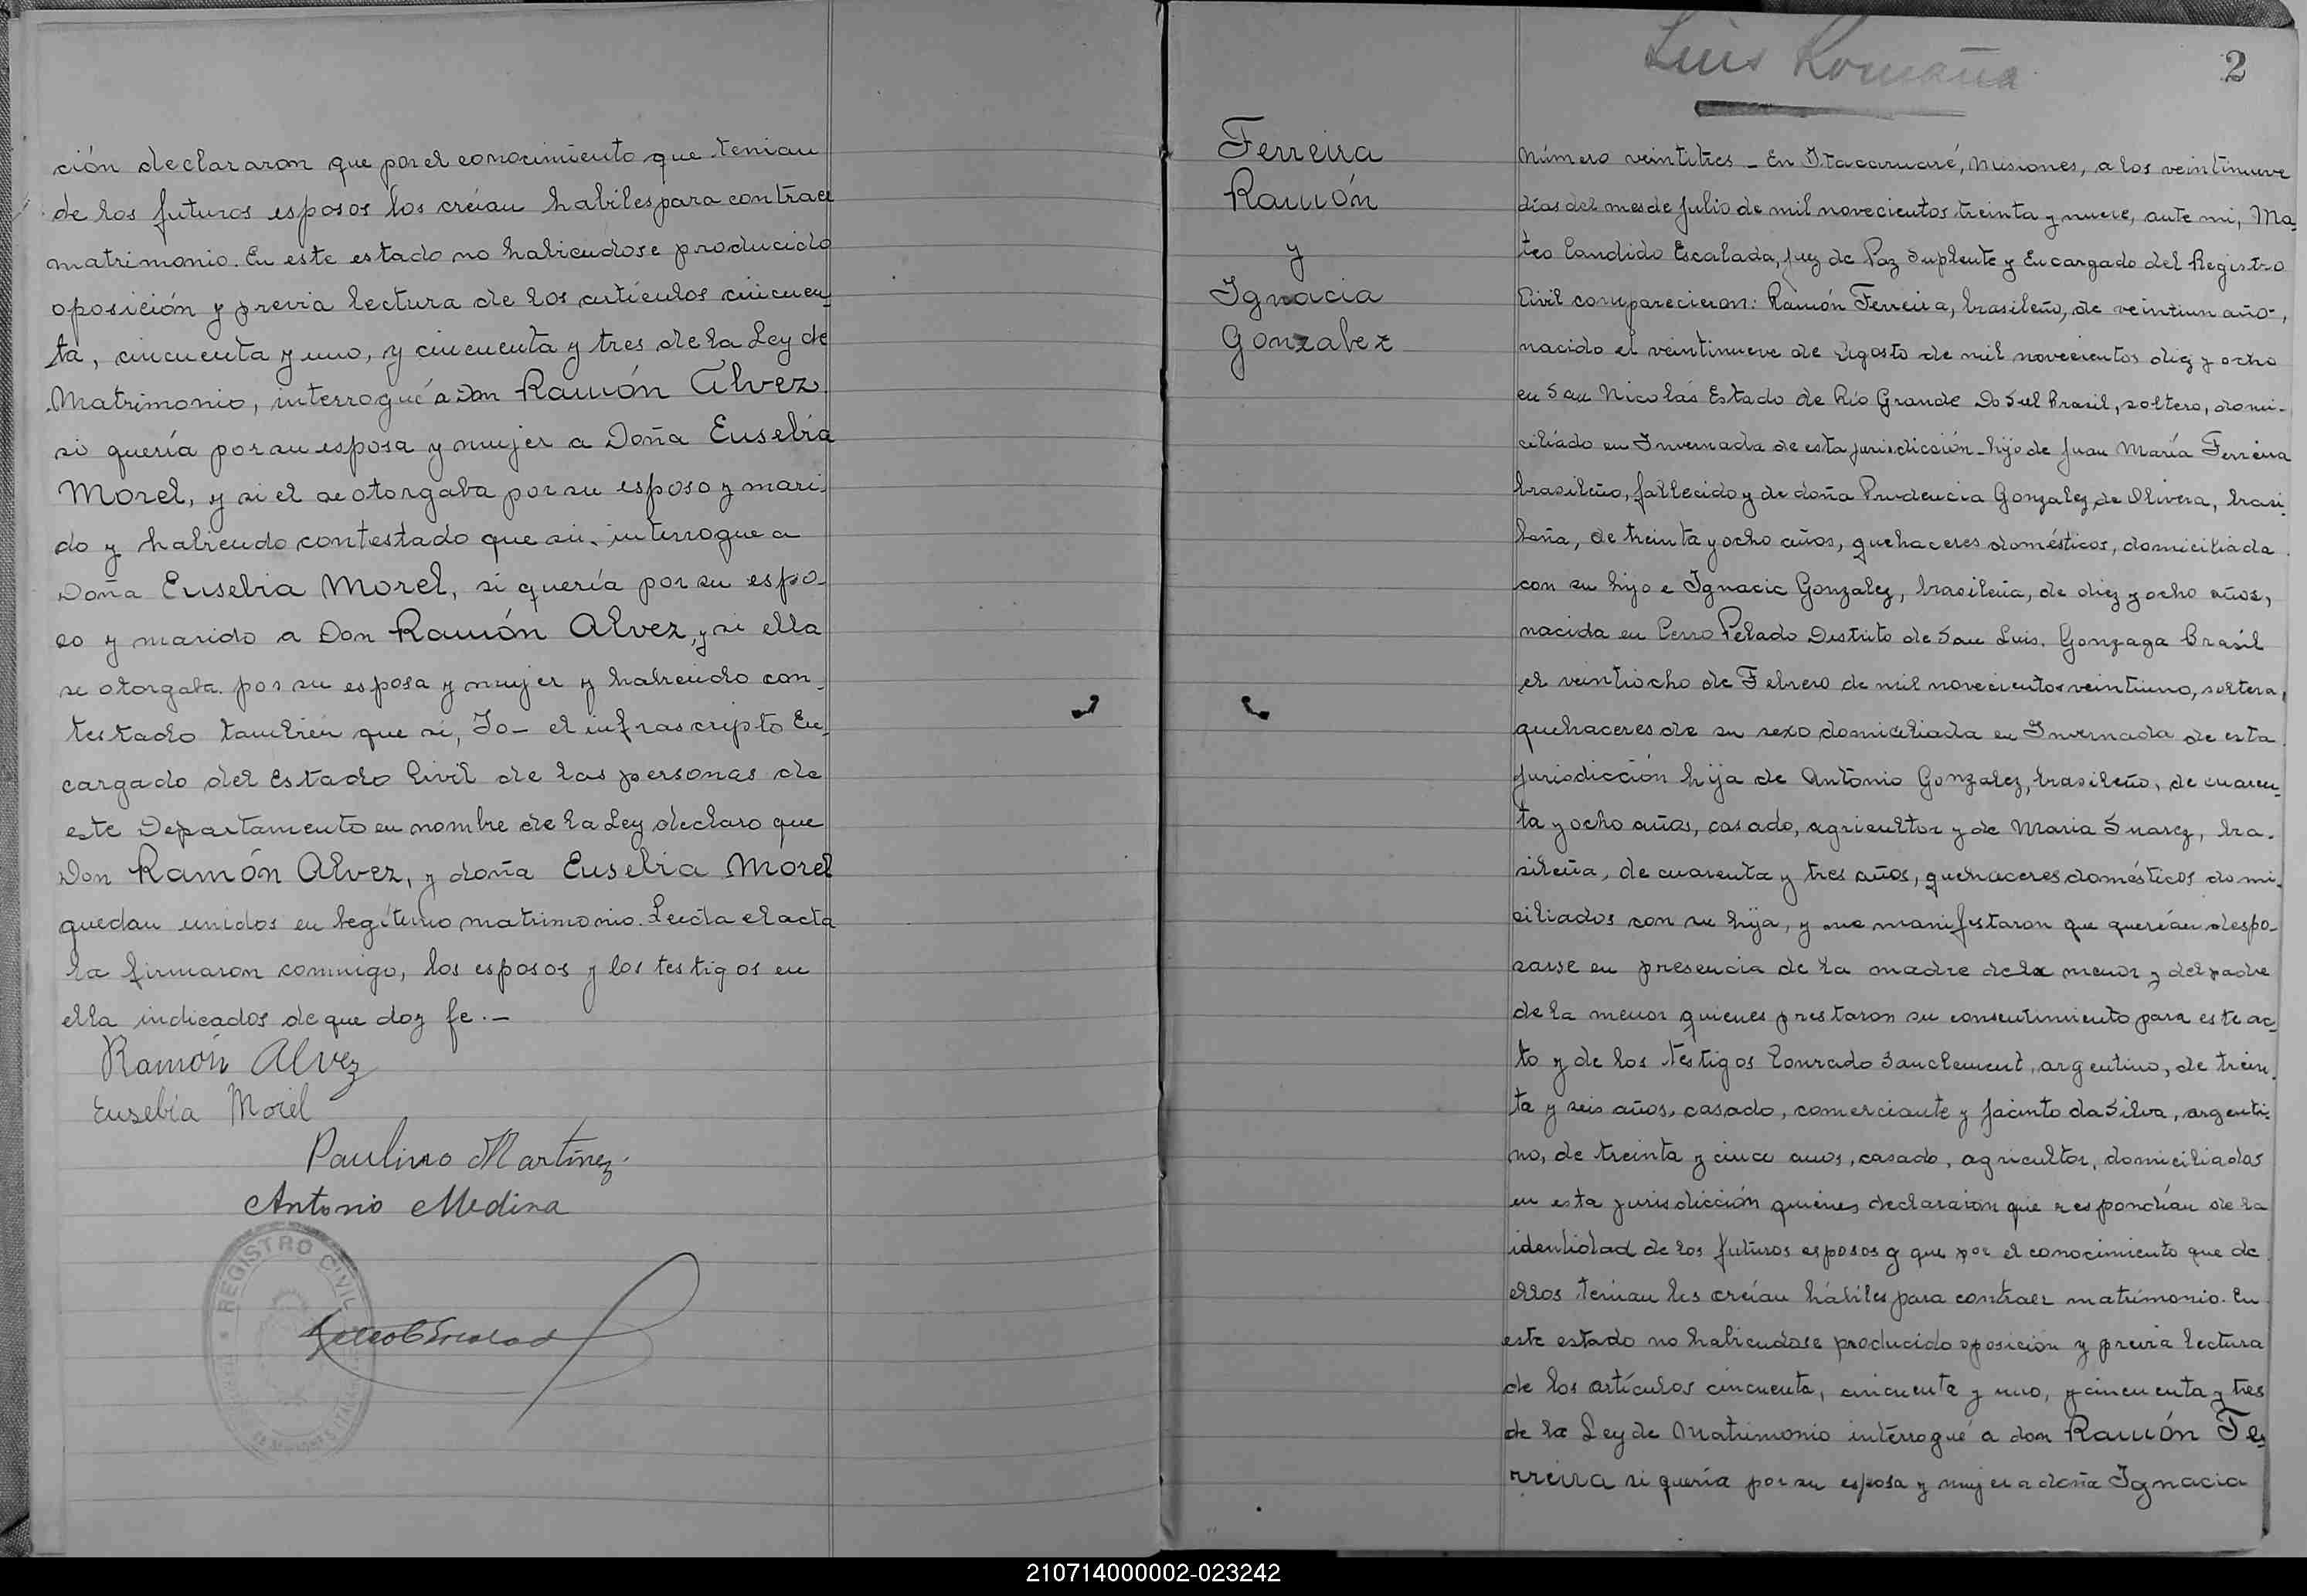 ción declararon que por el conocimiento que tenian
de los futuros esposos los creían habiles para contraer
matrimonio. En este estado no habiendose producido
oposición y previa lectura de los artículos cincuen-
ta, cincuenta y uno, y cincuenta y tres de la Ley de
Matrimonio, interrogué a Don Ramón Alvez
si quería por su esposa y mujer a Doña Eusebia
Morel, y si el se otorgaba por su esposo y mari-
do y habiendo contestado que si, interrogue a
Doña Eusebia Morel, si quería por su espo-
so y marido a Don Ramón Alvez, y si ella
se otorgaba por su esposa y mujer y habiendo con-
testado también que si, Yo - el infrascripto En-
cargado del Estado Civil de las personas de
este Departamento en nombre de la Ley declaro que
Don Ramón Alvez, y doña Eusebia Morel
quedan unidos en legítimo matrimonio. Leida el acta
la firmaron conmigo, los esposos y los testigos en
ella indicados de que doy fe.-
Ramón Alvez
Eusebia Morel
Paulino Martínez
Antonio Medina
REGISTRO CIVIL
Luis Romaña
2
Ferreira
Ramón
y
Ignacia
Gonzalez
Número veintitres - En Itacaruaré, Misiones, a los veintinueve
días del mes de Julio de mil novecientos treinta y nueve, ante mi, Ma-
teo Candido Escalada, Juez de Paz Suplente y Encargado del Registro
Civil comparecieron: Ramón Ferreira, brasileño, de veintiun año,
nacido el veintinueve de Agosto de mil novecientos diez y ocho
en San Nicolás Estado de Río Grande Do Sul Brasil, soltero, domi-
ciliado en Invernada de esta jurisdicción - hijo de Juan María Ferreira
brasileño, fallecido y de doña Prudencia Gonzalez de Olivera, brasi-
leña, de treinta y ocho años, quehaceres domésticos, domiciliada
con su hijo e Ignacia Gonzalez, brasileña, de diez y ocho años,
nacida en Cerro Pelado Distrito de San Luis Gonzaga Brasil
el veintiocho de Febrero de mil novecientos veintiuno, soltera,
quehaceres de su sexo domiciliada en Invernada de esta
jurisdicción hija de Antonio Gonzalez, brasileño, de cuaren-
ta y ocho años, casado, agricultor y de Maria Suarez, bra-
sileña, de cuarenta y tres años, quehaceres domésticos domi-
ciliados con su hija, y me manifestaron que querían despo-
sarse en presencia de la madre dela menor y del padre
de la menor quienes prestaron su consentimiento para este ac-
to y de los testigos Conrado Sanclement, argentino, de trein-
ta y seis años, casado, comerciante y Jacinto da Silva, argenti-
no, de treinta y cinco anos, casado, agricultor, domiciliados
en esta jurisdicción quienes declararon que respondían de la
identidad de los futuros esposos y que por el conocimiento que de
ellos tenian les creían hábiles para contraer matrimonio. En
este estado no habiendose producido oposición y previa lectura
de los artículos cincuenta, cincuenta y uno, y cincuenta y tres
de la Ley de Matrimonio interrogué a don Ramón Fe-
rreira si quería por su esposa y mujer a doña Ignacia
210714000002-023242